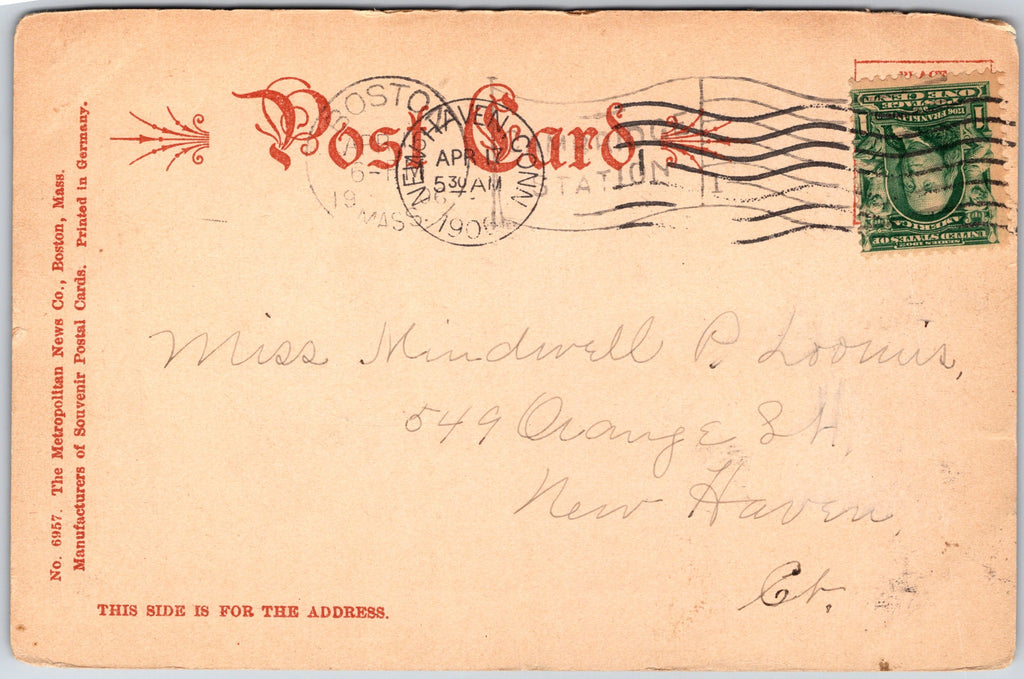 Post Card
BOSTON
MASS.
NEW HAVEN, CONN
APR 17
5 30 AM
STATION
1
ONE CENT
POSTAGE
FRANKLIN
1 1
AMERICA
UNITED STATES OF
SERIES 1902
No. 6957. The Metropolitan News Co., Boston, Mass.
Manufacturers of Souvenir Postal Cards. Printed in Germany.
Miss Mindwell P. Loomis,
549 Orange St.
New Haven,
Ct.
THIS SIDE IS FOR THE ADDRESS.